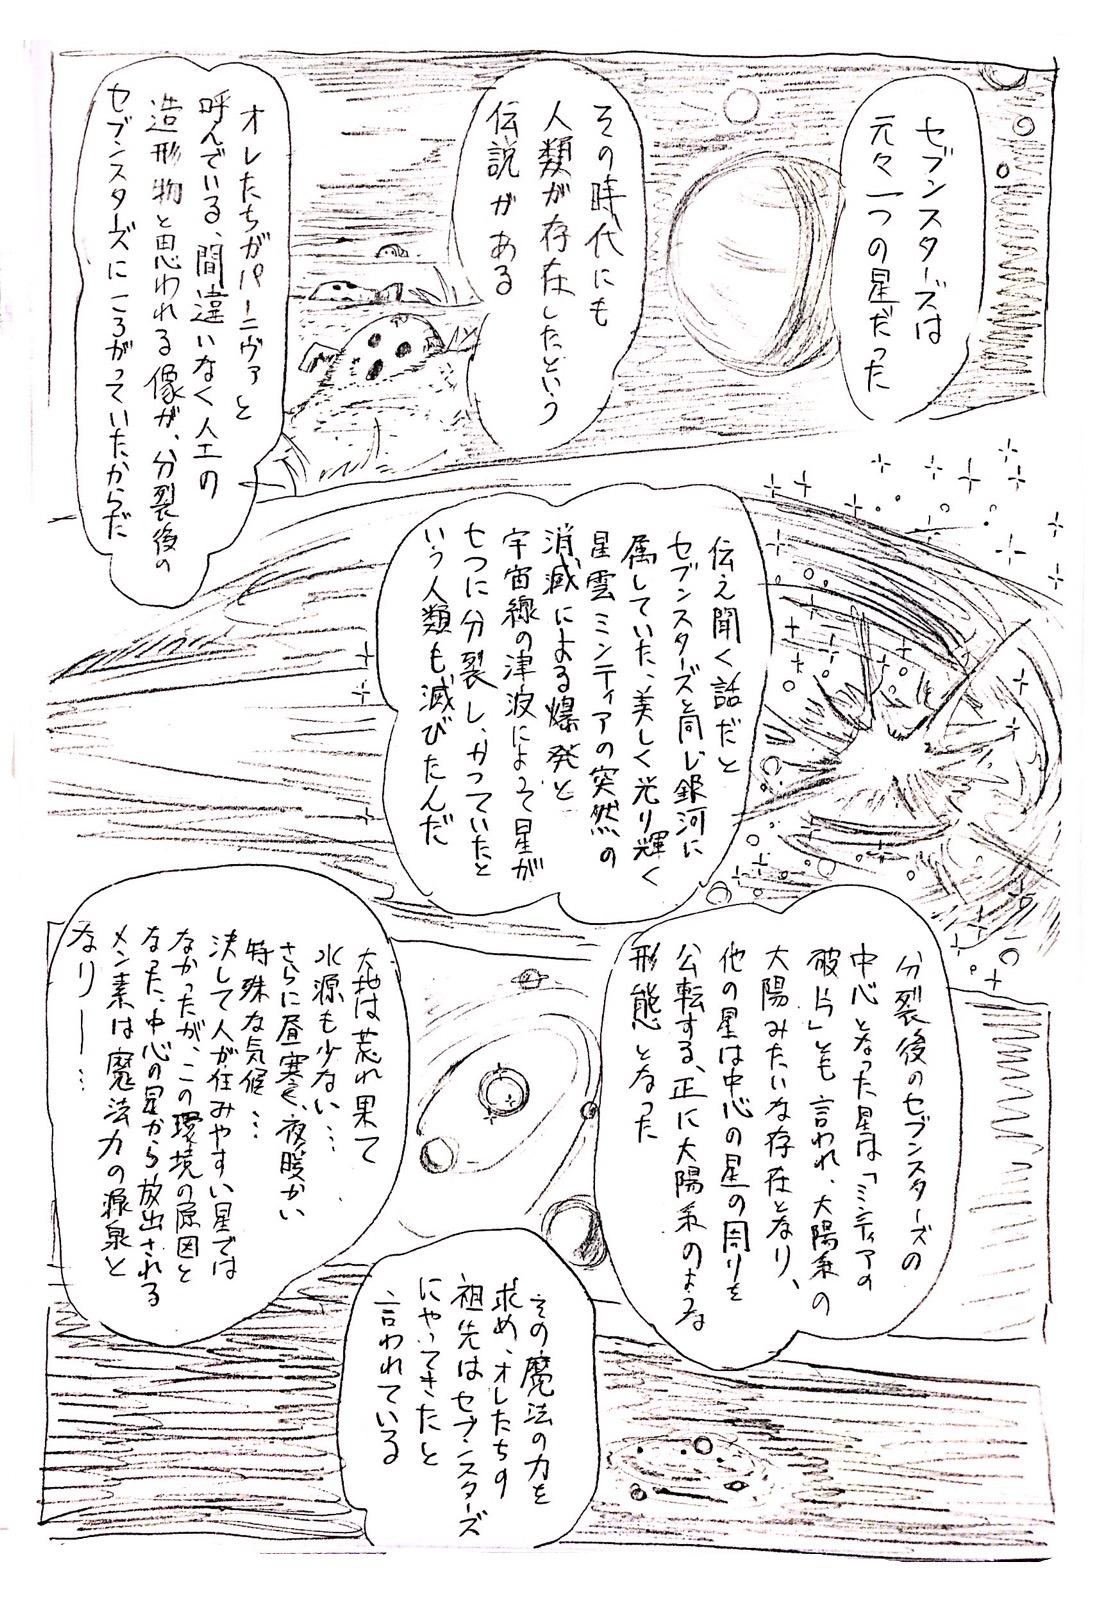 セブンスターズは
元々一つの星だった
その時代にも
人類が存在したという
伝説がある
オレたちがパーニヴァと
呼んでいる、間違いなく人工の
造形物と思われる像が、分裂後の
セブンスターズにころがっていたからだ
伝え聞く話だと
セブンスターズと同じ銀河に
属していた、美しく光り輝く
星雲ミンティアの突然の
消滅による爆発と
宇宙線の津波によって星が
七つに分裂し、かつていたと
いう人類も滅びたんだ
分裂後のセブンスターズの
中心となった星は「ミンティアの
破片」とも言われ、太陽系の
太陽みたいな存在となり、
他の星は中心の星の周りを
公転する、正に太陽系のような
形態となった
大地は荒れ果て
水源も少ない…
さらに昼寒く、夜暖かい
特殊な気候…
決して人が住みやすい星では
なかったが、この環境の原因と
なった、中心の星から放出される
メン素は魔法力の源泉と
なり——…
その魔法の力を
求め、オレたちの
祖先はセブンスターズ
にやってきたと
言われている